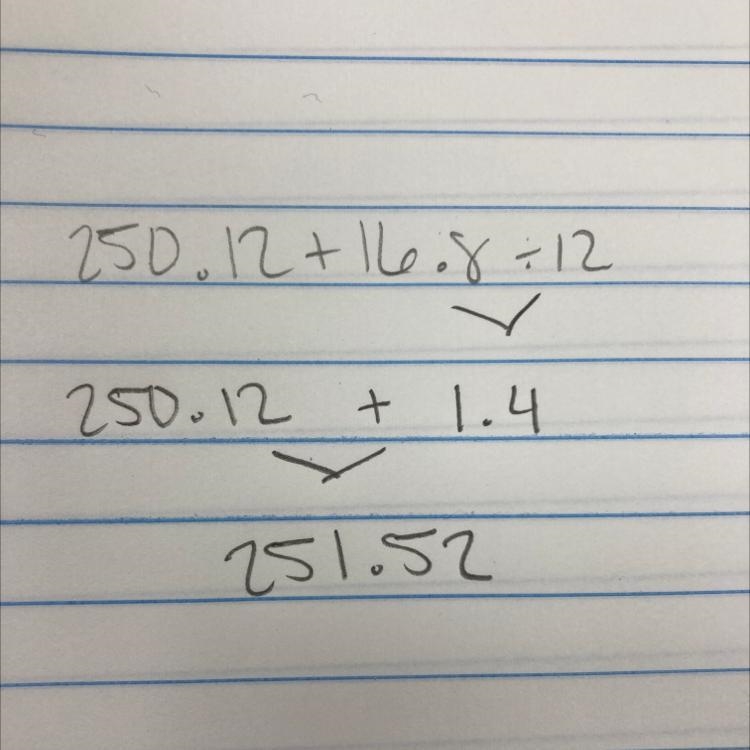 250.12 + 16.8 ÷ 12
250.12 + 1.4
251.52